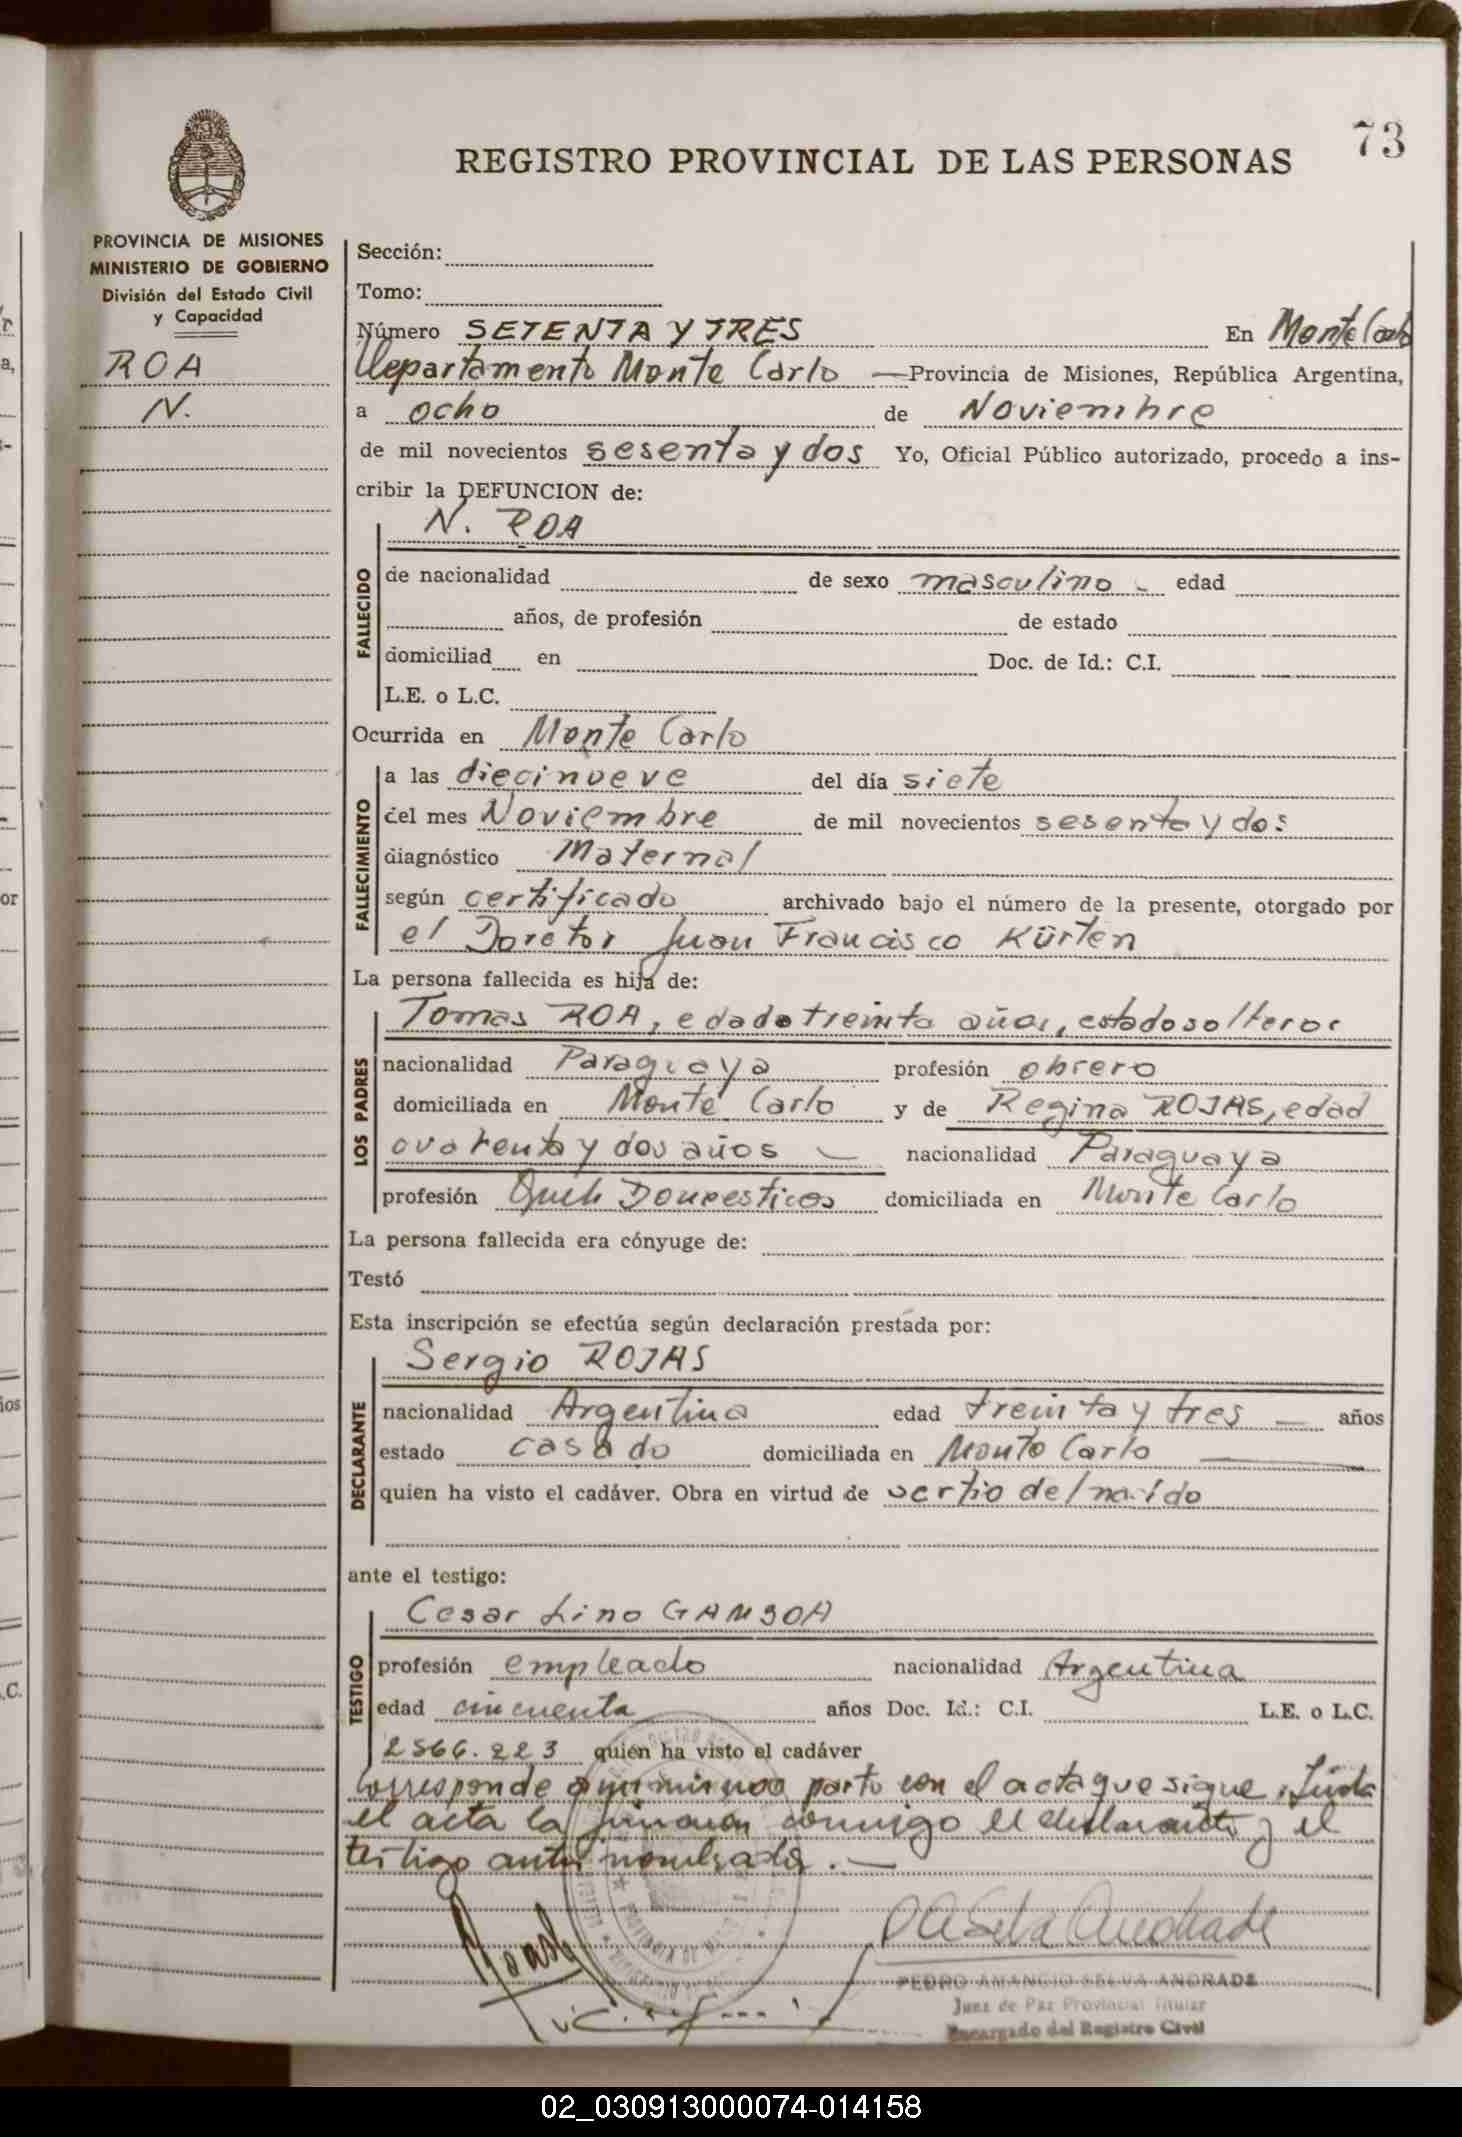 73
REGISTRO PROVINCIAL DE LAS PERSONAS
PROVINCIA DE MISIONES
MINISTERIO DE GOBIERNO
División del Estado Civil
y Capacidad
ROA
N.
Sección:
Tomo:
Número SETENTA Y TRES En Monte Carlo
Departamento Monte Carlo — Provincia de Misiones, República Argentina,
a ocho de Noviembre
de mil novecientos sesenta y dos Yo, Oficial Público autorizado, procedo a ins-
cribir la DEFUNCION de:
N. ROA
FALLECIDO
de nacionalidad de sexo masculino - edad
años, de profesión de estado
domiciliad en Doc. de Id.: C.I.
L.E. o L.C.
Ocurrida en Monte Carlo
FALLECIMIENTO
a las diecinueve del día siete
del mes Noviembre de mil novecientos sesenta y dos
diagnóstico Maternal
según certificado archivado bajo el número de la presente, otorgado por
el Doctor Juan Francisco Kürten
La persona fallecida es hija de:
LOS PADRES
Tomas ROA, edad treinta años, estado solteros
nacionalidad Paraguaya profesión obrero
domiciliada en Monte Carlo y de Regina ROJAS, edad
cuarenta y dos años — nacionalidad Paraguaya
profesión Queh Domesticos domiciliada en Monte Carlo
La persona fallecida era cónyuge de:
Testó
Esta inscripción se efectúa según declaración prestada por:
DECLARANTE
Sergio ROJAS
nacionalidad Argentina edad treinta y tres — años
estado casado domiciliada en Monte Carlo
quien ha visto el cadáver. Obra en virtud de ser tio del nacido
ante el testigo:
TESTIGO
Cesar Lino GAMBOA
profesión empleado nacionalidad Argentina
edad cincuenta años Doc. Id.: C.I. L.E. o L.C.
2566.223 quien ha visto el cadáver
Corresponde a un mismo parto con el acta que sigue. Leída
el acta la firman conmigo el declarante y el
testigo antes nombrado. —
PEDRO AMANCIO SELVA ANDRADE
Juez de Paz Provincial Titular
Encargado del Registro Civil
02_030913000074-014158